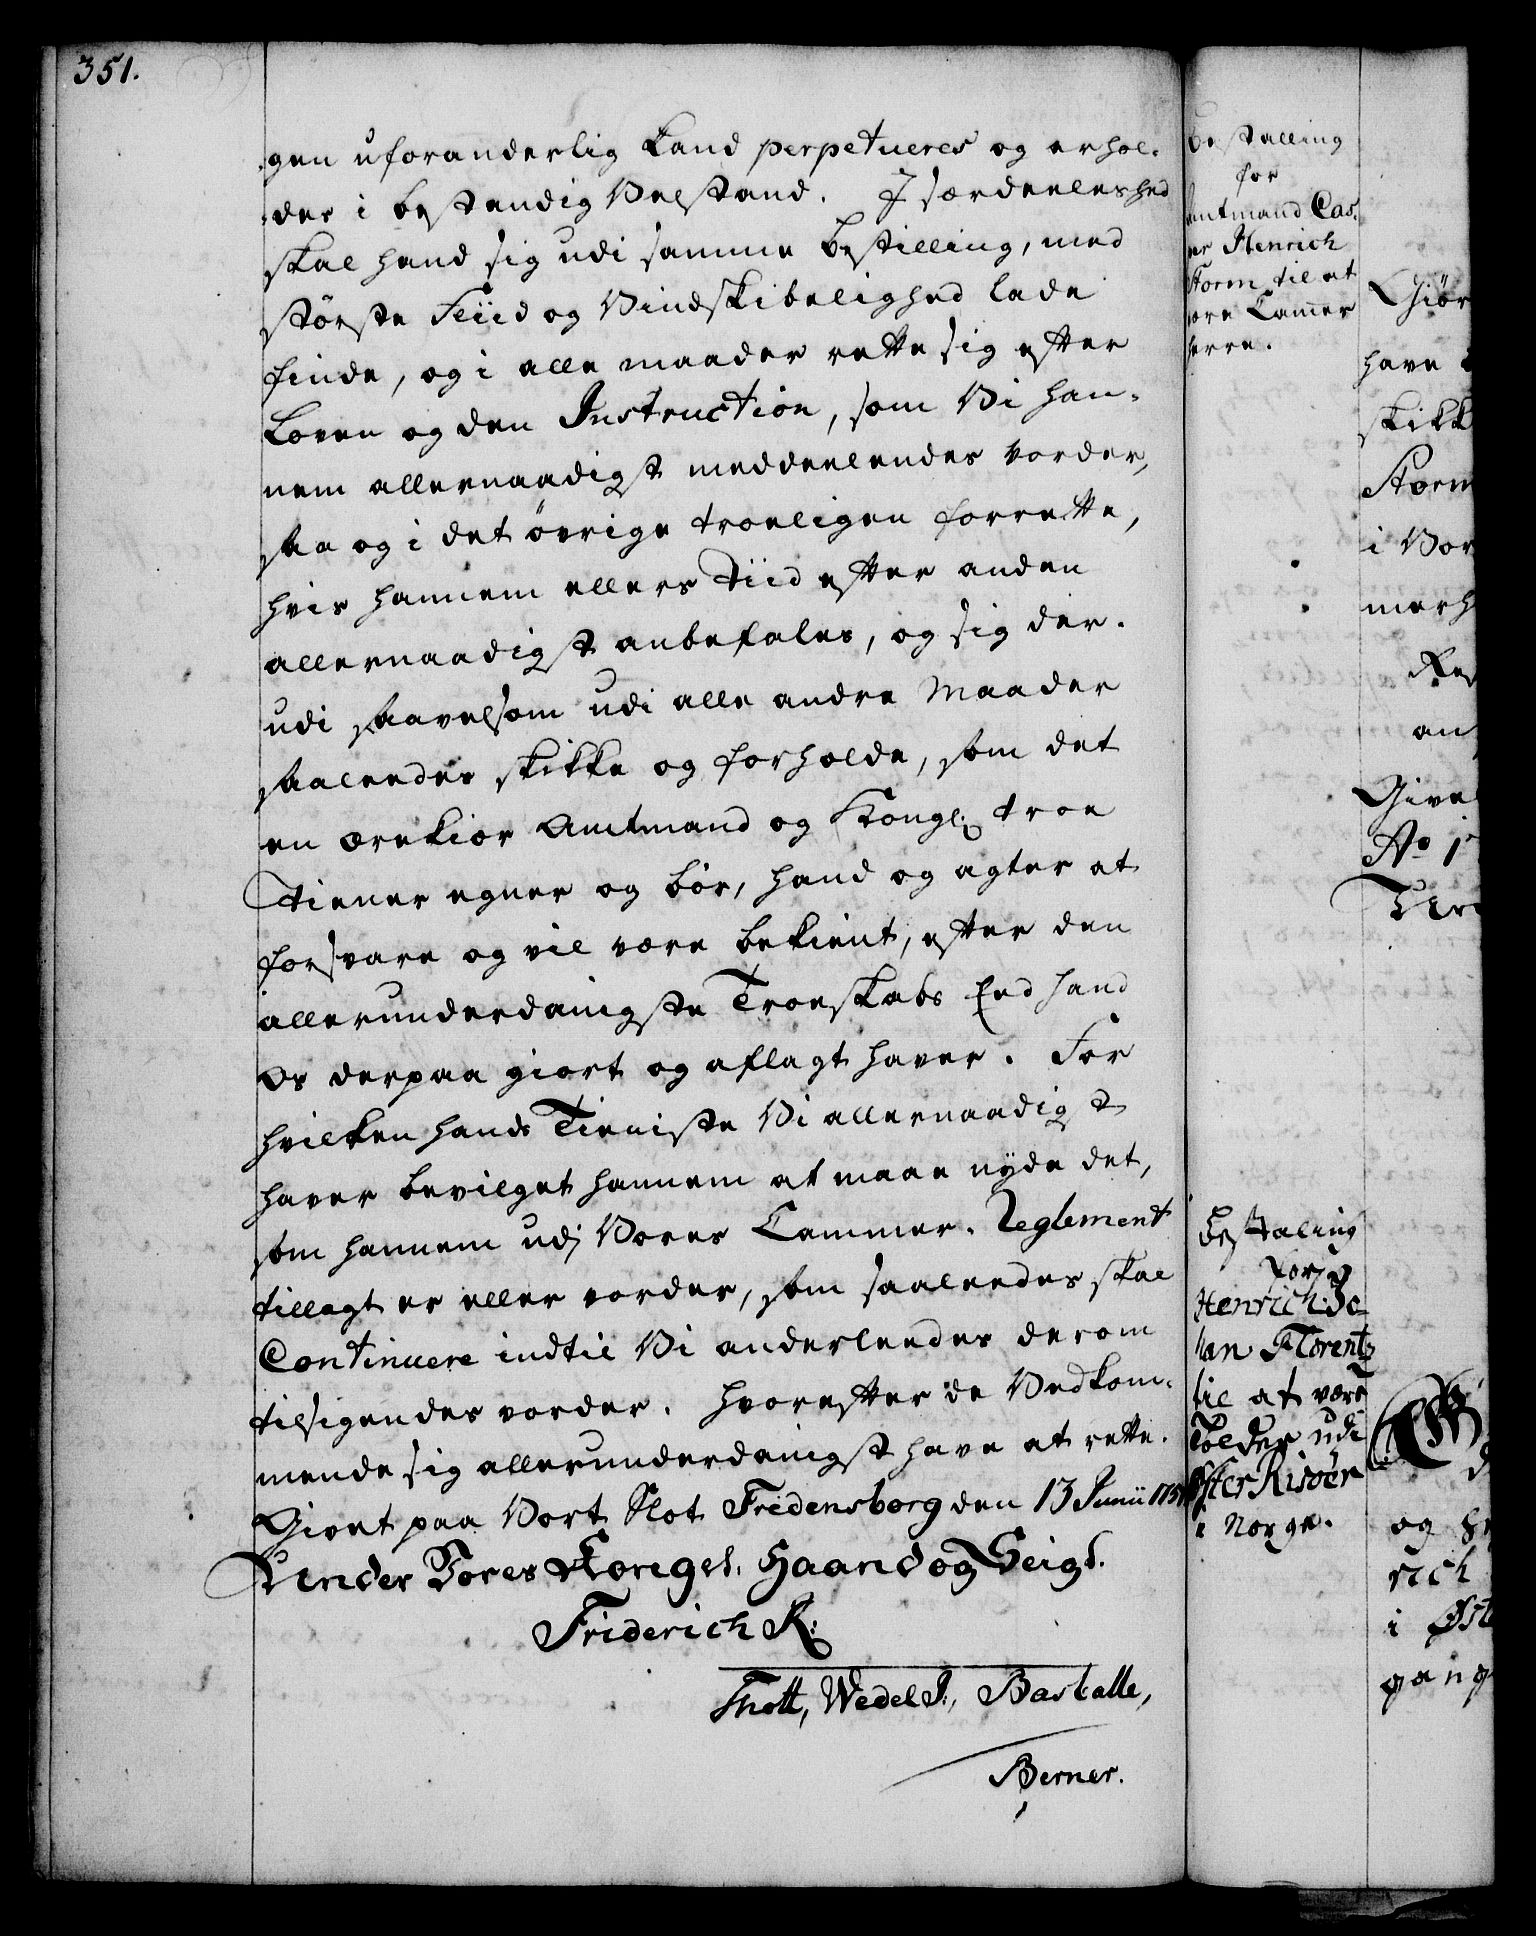 351.
gen uforanderlig kand perpetueres og erhol-
des i bestendig Velstand. I særdeeleshed
skal hand sig udi samme Bestilling, med
største Fliid og Vindskibelighed lade
finde, og i alle maader rette sig efter
Loven og den Instruction, som Vi han-
nem allernaadigst meddeelendes vorder,
saa og i det øvrige troeligen forrette,
hvis hannem ellers Tiid efter anden
allernaadigst anbefales, og sig der-
udi saavelsom udi alle andre Maader
saaleedes skikke og forholde, som det
en ærekiær Amtmand og Kongl: troe
Tiener egner og bør, hand og agter at
forsvare og vil være bekient, efter den
allerunderdanigste Troeskabs Eed hand
Os derpaa giort og aflagt haver. For
hvilken hands Tieniste Vi allernaadigst
haver bevilget hannem at maae nyde det,
som hannem udj Vores Cammer-Reglement
tillagt er eller vorder, som saaleedes skal
Continuere indtil Vi anderleedes derom
tilsigendes vorder. Hvorefter de Vedkom-
mende sig allerunderdanigst have at rette.
Givet paa Vort Slot Fredensborg den 13 Junii 175
Under Vores Kongel. Haand og Seigl.
Friderich R:
Thott, Wedel J:, Barkalle,
Berner.
Bestalling
for
Amtmand Cas-
er Henrich
Storm til at
være Cammer
herre.
Bestaling
for
Henrich Jo-
han Florentz
til at være
Tolder udi
Øster Risøer
i Norge.
Giør
have
skikk
Storm
i Vor
merh
Give
Ao 1
Un
og
rich
i Øst
gang